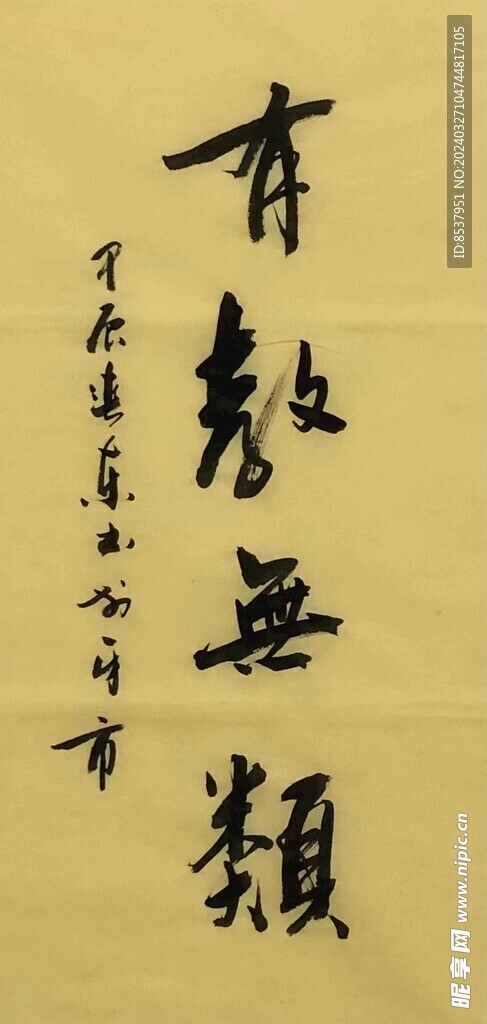 有教無類
甲辰溪东书
市
ID:8537951 NO:20240327104744817105
昵享网 www.nipic.cn